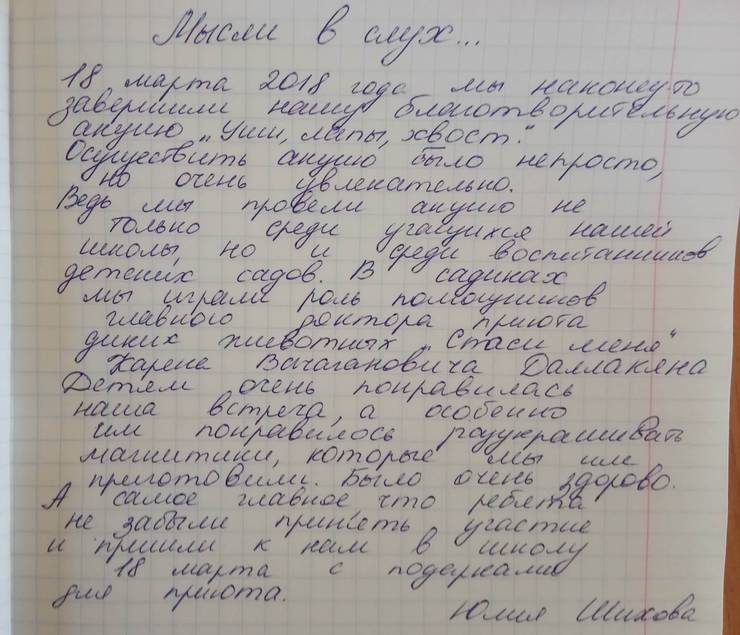 Мысли в слух...
18 марта 2018 года мы наконец-то
завершили нашу благотворительную
акцию „Уши, лапы, хвост".
Осуществить акцию было непросто,
но очень увлекательно.
Ведь мы провели акцию не
только среди учащихся нашей
школы, но и среди воспитанников
детских садов. В садиках
мы играли роль помощников
главного доктора приюта
диких животных „Спаси меня"
Карена Вачагановича Даллакяна
Детям очень понравилась
наша встреча, а особенно
им понравилось разукрашивать
магнитики, которые мы им
приготовили. Было очень здорово.
А самое главное что ребята
не забыли принять участие
и пришли к нам в школу
18 марта с подарками
для приюта.
Юлия Шихова